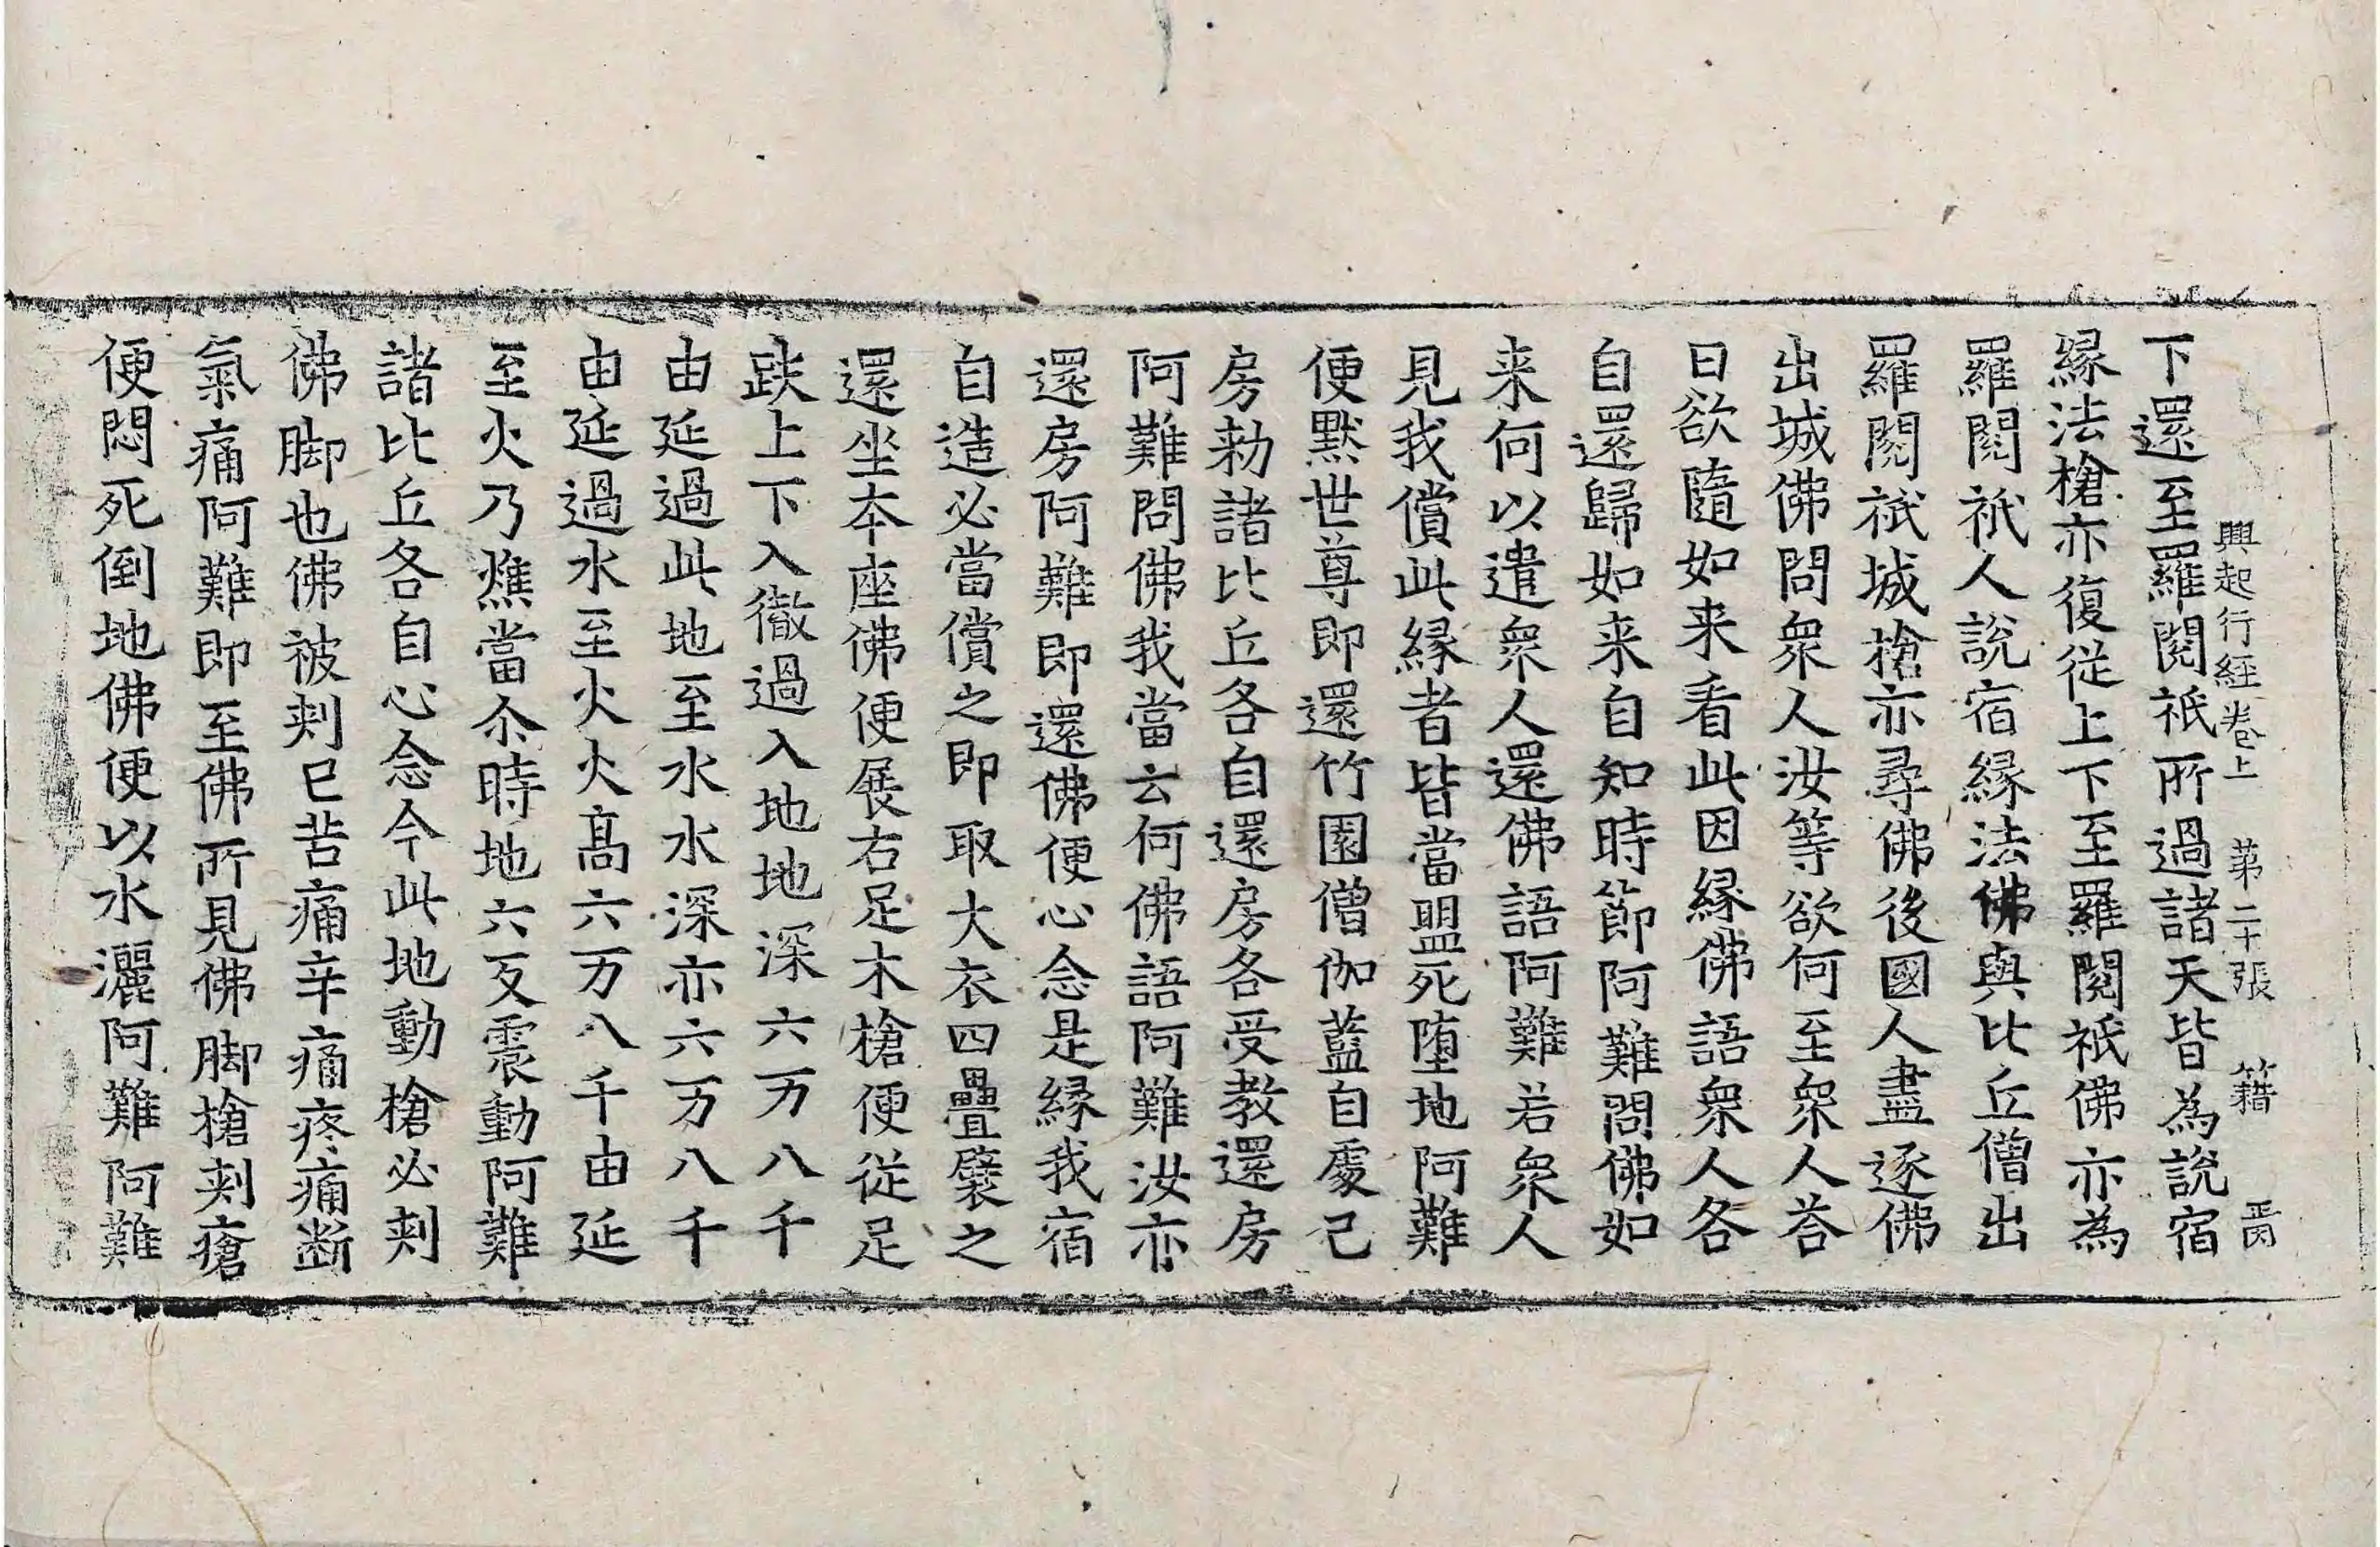 興起行經卷上　第二十張　籍
下還至羅閱祇所過諸天皆為說宿
緣法槍亦復從上下至羅閱祇佛亦為
羅閱祇人說宿緣法佛與比丘僧出
羅閱祇城槍亦尋佛後國人盡逐佛
出城佛問衆人汝等欲何至衆人荅
曰欲隨如来看此因緣佛語衆人各
自還歸如来自知時節阿難問佛如
来何以遣衆人還佛語阿難若衆人
見我償此緣者皆當盟死墮地阿難
便默世尊即還竹園僧伽藍自處己
房勑諸比丘各自還房各受教還房
阿難問佛我當云何佛語阿難汝亦
還房阿難即還佛便心念是緣我宿
自造必當償之即取大衣四疊襞之
還坐本座佛便展右足木槍便從足
趺上下入徹過入地地深六万八千
由延過此地至水水深亦六万八千
由延過水至火火高六万八千由延
至火乃燋當尒時地六反震動阿難
諸比丘各自心念今此地動槍必刾
佛脚也佛被刾已苦痛辛痛疼痛断
氣痛阿難即至佛所見佛脚槍刾瘡
便悶死倒地佛便以水灑阿難阿難